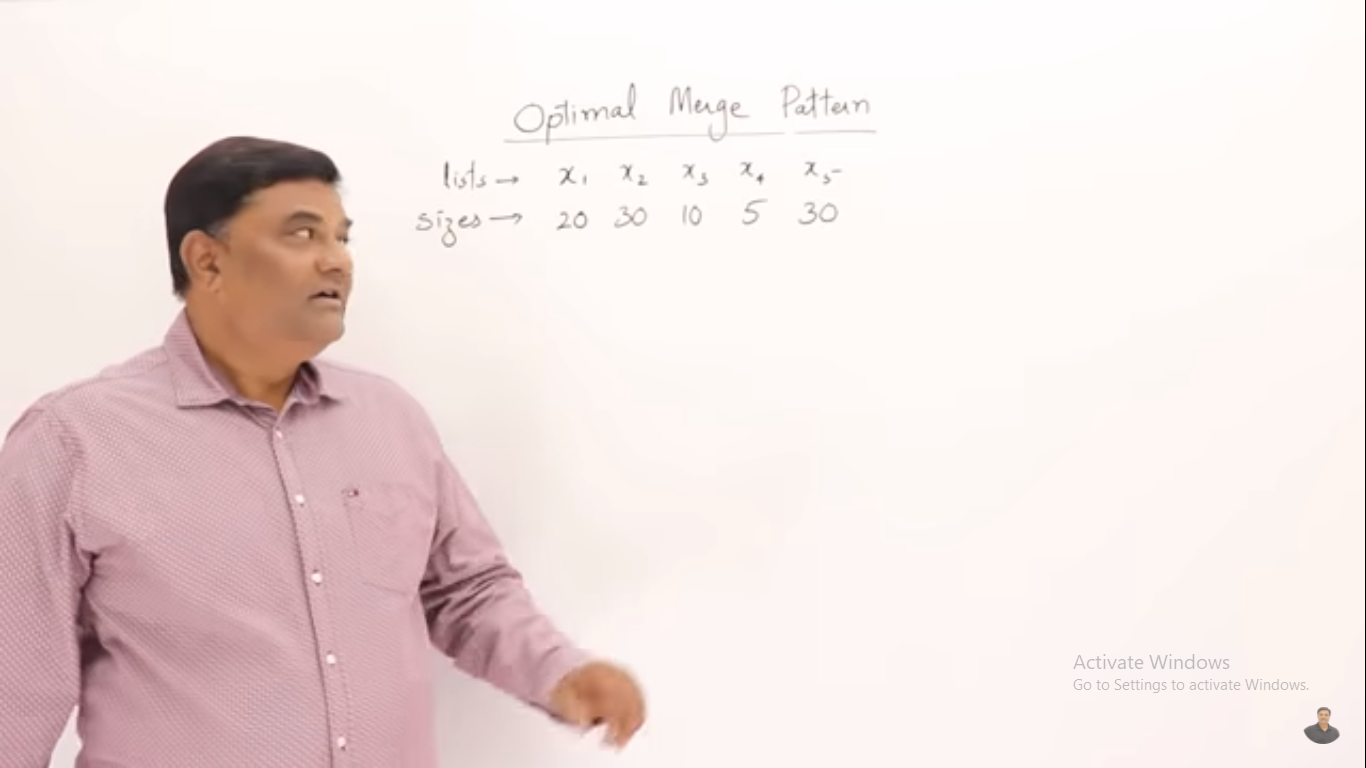 Optimal Merge Pattern
lists → x₁ x₂ x₃ x₄ x₅
sizes → 20 30 10 5 30
Activate Windows
Go to Settings to activate Windows.